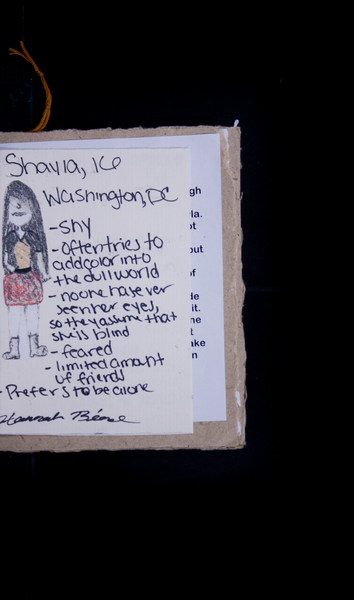 Shayla, 16
Washington, DC
- shy
- often tries to
add color into
the dull world
- no one have ver
seen her eyes,
so they assume that
she is blind
- feared
- limited amount
of friends
- Prefers to be alone
Hannah
gh
la.
ot
out
of
de
it.
ne
t
ake
n